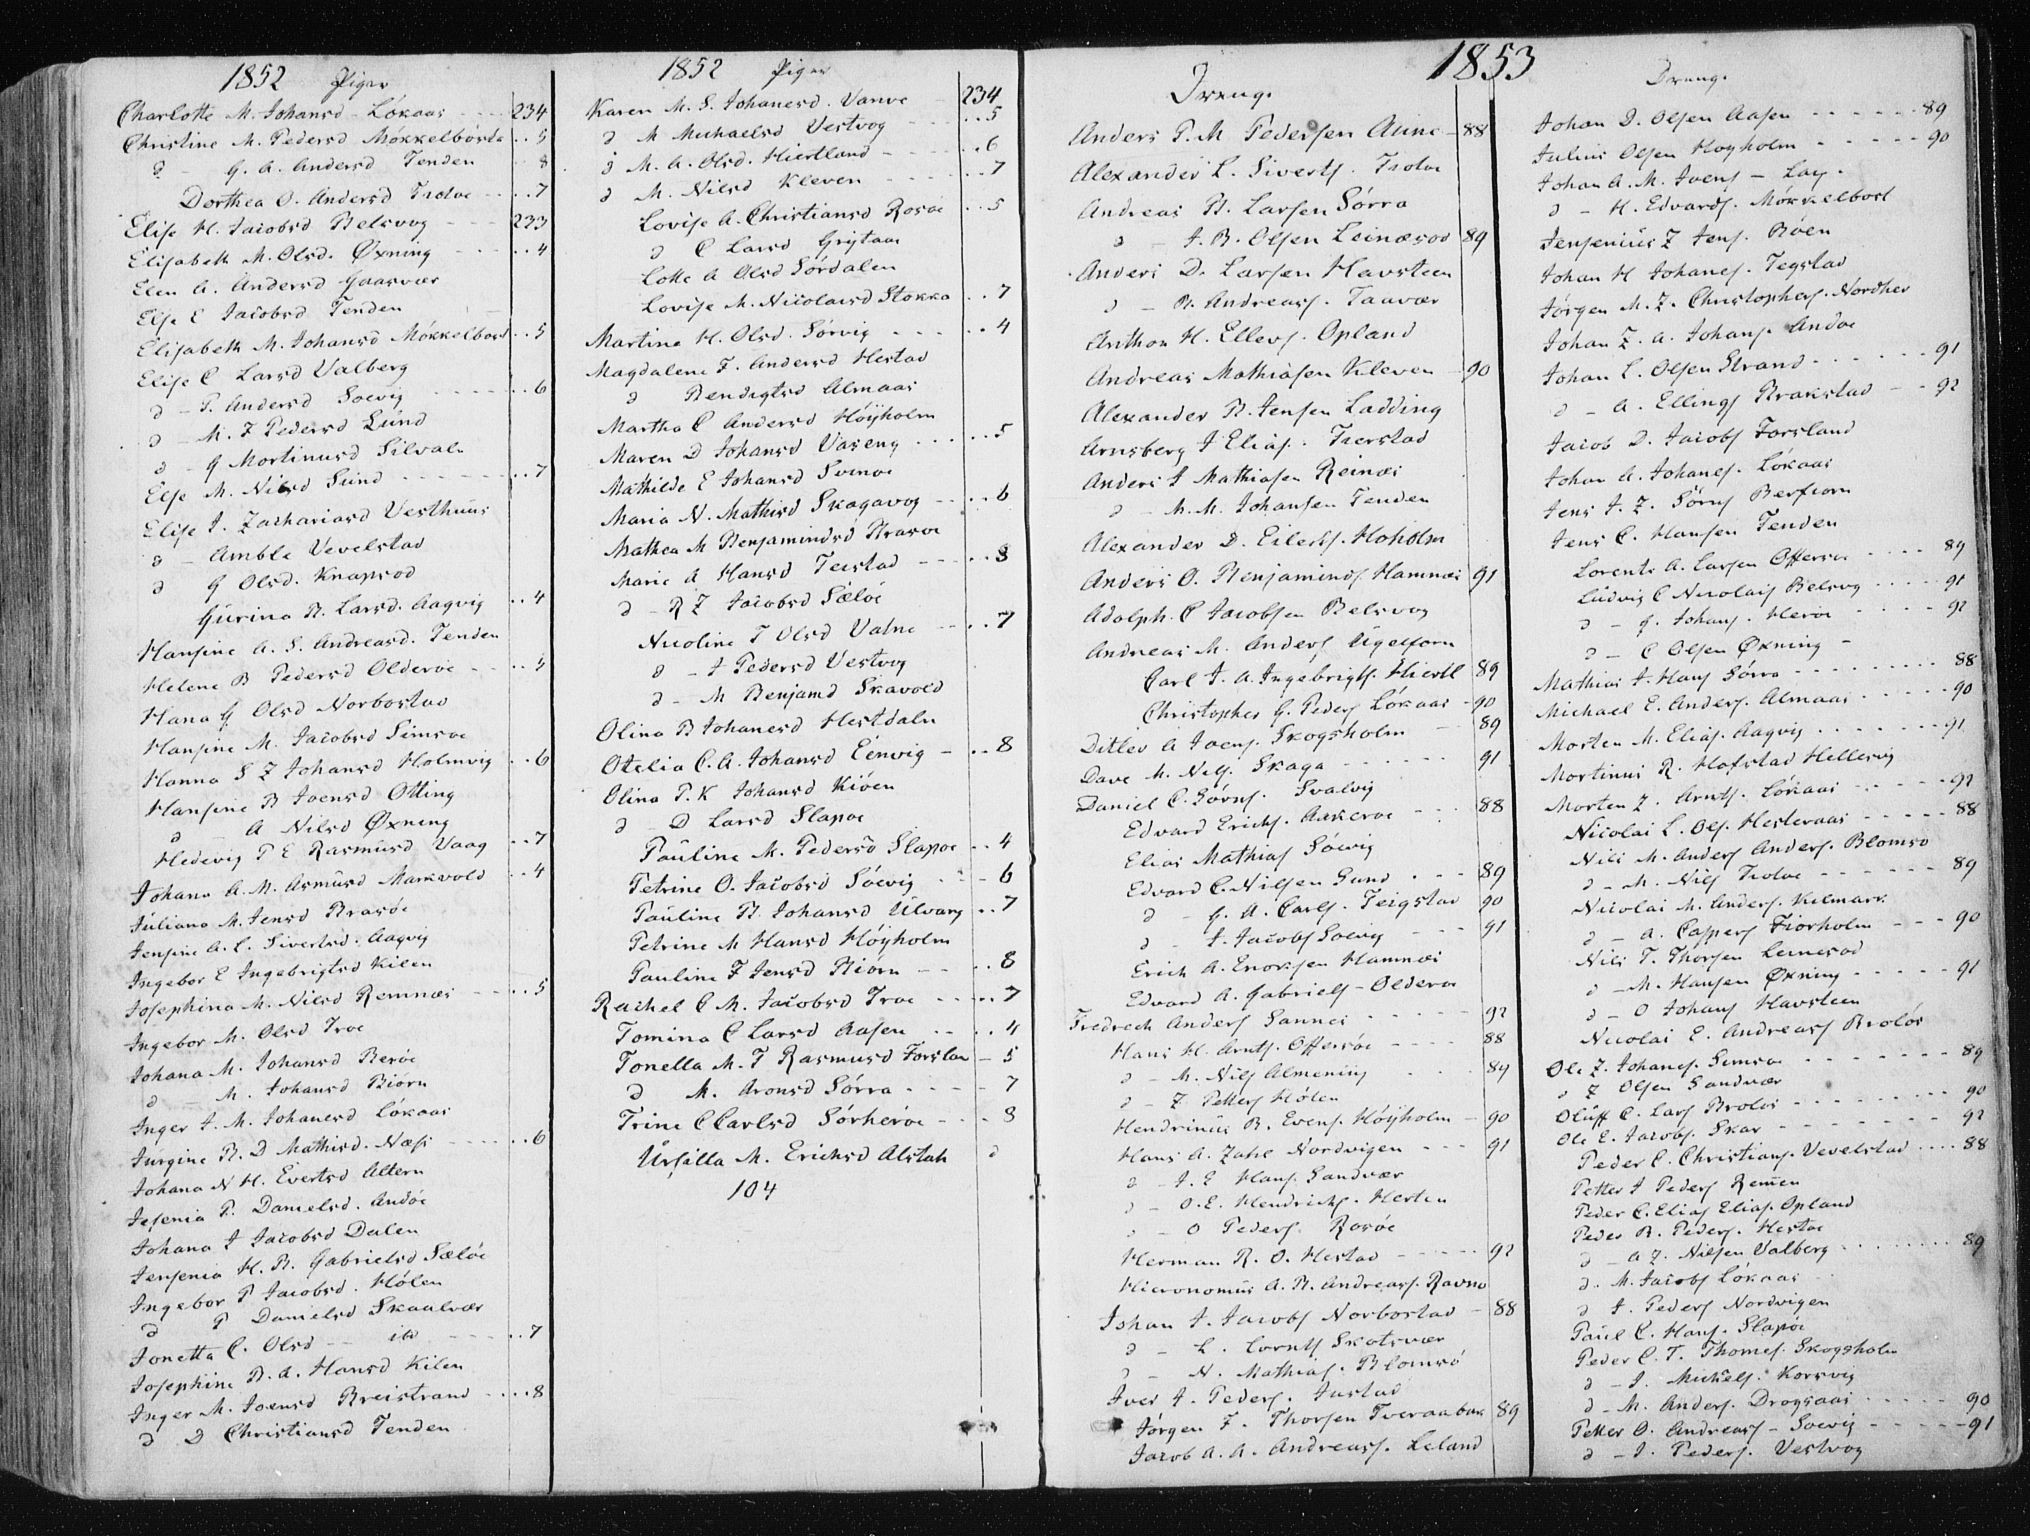 1852 Piger
Charlotte M. Johansd - Lökaas - - - 234
Christine M. Pedersd Mökkelbörsta . . 5
d - G. A. Andersd Tenden 8
Dorthea O. Andersd Trolöe . . . 7
Elise H. Jacobsd Belsvog - 233
Elisabeth M. Olsd. Øxning - - - . . 4
Elen A. Andersd Gaasvær
Else E Jacobsd Tenden
Elisabeth M. Johansd Mökkelborst . . 5
Elise C Larsd Valberg
d - P. Andersd Soevig - - - - . . 6
d - M. F Pedersd Lund
d - G Mortinusd Silvaln
Else M. Nilsd Sund - - - - . . 7
Elise J. Zachariasd Vesthuus
d - Amble Vevelstad
d G Olsd. Knapsod
Gurina B. Larsd. Aagvig . . 4
Hansine A. S. Andreasd. Tenden
Helene B Pedersd Olderöe - - . . 5
Hana G Olsd Norbostad
Hansine M. Jacobsd Simsoe
Hanna S Z Johansd Holmvig . . 6
Hansine B Joensd Otting
d - A Nilsd Øxning
Hedevig P E Rasmusd Vaag . . 7
Johana A. M. Asmusd Markvold . . 4
Juliana M. Jensd Brasöe
Jensine A. C. Sivertsd. Aagvig
Ingebor E Ingebrigtsd Kilen
Josephina M. Nilsd Remnæs - - . . 5
Ingebor M. Olsd Troe
Johana M. Johansd Beröe
d - M. Johansd Biörn
Inger J. M. Johanesd Lökaas
Jurgine B. D Mathisd. Næss - - - . . 6
Johana N H. Evertsd Altern
Jesenia P. Danielsd. Andöe
Johana J Jacobsd Dalen
Jensenia H. B. Gabrielsd Sælöe
Ingebor P Jacobsd. Hölen
d P Danielsd Skaalvær
Jonetta C. Olsd - - ito - - - . . 7
Josephine B. A. Hansd Kilen
Inger M. Joensd Breistrand - . . . 8
d D Christiansd Tenden
1852 Piger
Karen M. S. Johanesd. Vanve - 234
d M Michaelsd Vestvog - - - . . 5
d M. A. Olsd. Hiertland - - - . . 6
d M. Nilsd Kleven - - - - . . 7
Lovise A. Christiansd Rosöe . . 5
d C Larsd Grytaae
Lotte A Olsd Sördalen
Lovise M. Nicolaisd Stokka . . 7
Martina H. Olsd. Sörvig - - - . . 4
Magdalene F. Andersd Hestad
d Bendigtsd Almaas
Martha C Andersd Höyholm
Maren D Johansd Vaseng - - - . . 5
Mathilde E Johansd Svinöe
Maria N. Mathisd Skagavog - - . . 6
Mathea M Benjamindsd Brasoe
Marie A Hansd Teistad - - - . . 8
d - R Z Jacobsd Sælöe
Nicoline T Olsd Valne - - . . 7
d - J Pedersd Vestvog
d - M Benjamd Skavold
Olina B Johanesd Hestdaln
Otelia C. A. Johansd Eenvig - . . 8
Olina P. K Johansd Kiöen
d - D Larsd Slapöe
Pauline M. Pedersd Slapoe . . 4
Petrine O. Jacobsd Söevig - - - 6
Pauline B. Johansd Ulvang . . 7
Petrine M Hansd Höyholm
Pauline F Jensd Biörn - - . . 8
Rachel C M. Jacobsd Troe - - . . 7
Tomina C Larsd Aasen - - . . 4
Tonella M. T Rasmusd Forslan - 5
d M. Aronsd Sörra - - - - 7
Trine C Carlsd Sörheröe - - - 8
Ursilla M. Erichsd Alstah d
104
1853
Dreng.
Anders P. M Pedersen Aune - 88
Alexander L. Siverts. Trolöe
Andreas B. Larsen Sörra
d - J. B. Olsen Leinæsod 89
Anders D. Larsen Havsteen
d - B. Andreass. Taavær
Anthon H. Ellevs. Opland
Andreas Mathiasen Kleven - 90
Alexander B. Jensen Ladding
Arnsberg J Elias. Tierstad
Anders J Mathiasen Reinæs
d - M. M. Johansen Tenden
Alexander D. Eilerts. Hoholm
Anders O. Benjamins. Hamnæs 91
Adolph. C Jacobsen Belsvog
Andreas M. Anders Ugelforn
Carl J. A. Ingebrigts. Hiertl 89
Christopher G. Peders Lökaas - 90
Ditlev A Joens. Skogsholm - 89
Dave M. Nils. Skaga - - - - - - 91
Daniel C. Sörns. Svalvig
Edvard Erichs. Aakeroe - - : 88
Elias Mathias Söevig
Edvard C. Nilsen Sund . - - 89
d - G. A. Carls. Teigstad 90
d - J. Jacobs Soevig - - - 91
Erich A. Enoksen Hamnæs
Edvard A. Gabriels - Olderöe
Fredrech Anders Sannes - - - - 92
Hans H. Arnts. Offersöe - - - - 88
d - M. Nils Almening - - 89
d - Z Petters Hölen
Hendrinus B. Evens. Höyholm - 90
Hans A. Zahl Nordvigen - - - 91
d - J. E Hans. Sandvær
d - O. E. Hendrichs. Hesten
d - O Peders. Rosöe
Herman R. O. Hestad - - - - - 92
Hieronomus A. B. Andreass. Ravno
Johan J. Jacobs Norbostad - 88
d - L. Lornts Skotsvær
d - N. Mathias. Blomsö
Iver A. Peders. Justad
Jörgen F. Thorsen Tveraabak 89
Jacob A. A. Andreass. Leland
Dreng.
Johan D. Olsen Aasen - - - - - 89
Julius Olsen Hoyholm - - - - - 90
Johan A. M. Joens - Lay.
d - H. Edvards. Mökkelbost
Jensenius Z Jens. Böen
Johan H Johanes. Tegstad
Jörgen M. Z. Christophers. Nordher
Johan Z. A. Johans Andöe
Johan L. Olsen Strand - - - - - - 91
d - A. Ellings Brakstad - - 92
Jacob D. Jacobs Forsland
Johan A. Johanes. Lökaas
Jens J. Z. Sörns Berfiorn
Jens C. Hansen Tenden
Lorents A. Larsen Offersöe - - - - 89
Ludvig C Nicolais Belsvog - - - - - 91
d - G. Johans. Heröe - - - - - 92
d - C Olsen Øxning -
Mathias J. Hans Sörra - - - - - - - - - 88
Michael E. Anders. Almaas - - - - - - 90
Morten M. Elias. Aagvig - - - - - - - 91
Mortinus R. Hofstad Hellesvig
Morten Z. Arnts. Lökaas - - - - - 92
Nicolai L. Ols. Hestevaas - - - - - 88
Nils M. Anders Anders. Blomsö
d - M. Nils Trolöe - - - - - - 89
Nicolai M. Anders. Kilmark
d - A. Caspers Fiorholm - - - 90
Nils T. Thorsen Leinesod
d - M. Hansen Øxning - - - - - 91
d - O Johans Havsteen
Nicolai E. Andreass Brolös
Ole Z. Johanes. Simsoe - - - - - - - 89
d Z Olsen Sandvær
Oluff C. Lars Brolös - - - - - - - - 90
Ole E. Jacobs. Skar - - - - - - - - 92
Peder C. Christians. Vevelstad . . . . 88
Petter J Peders Remen
Peder C. Elias Elias. Opland
Peder B. Peders. Hestöe
d - A Z. Nilsen Valberg - - - - - - - - 89
d. M. Jacobs Lökaas
d J. Peders Nordvigen
Paul C. Hans. Slapöe
Peder C. T. Thomes. Skogsholm
d - J. Michels. Korsvig
d - M. Anders. Drogsaas - - - - - - 90
Petter O. Andreass - Soevig - - - - - - 91
d - J. Peders. Vestvog